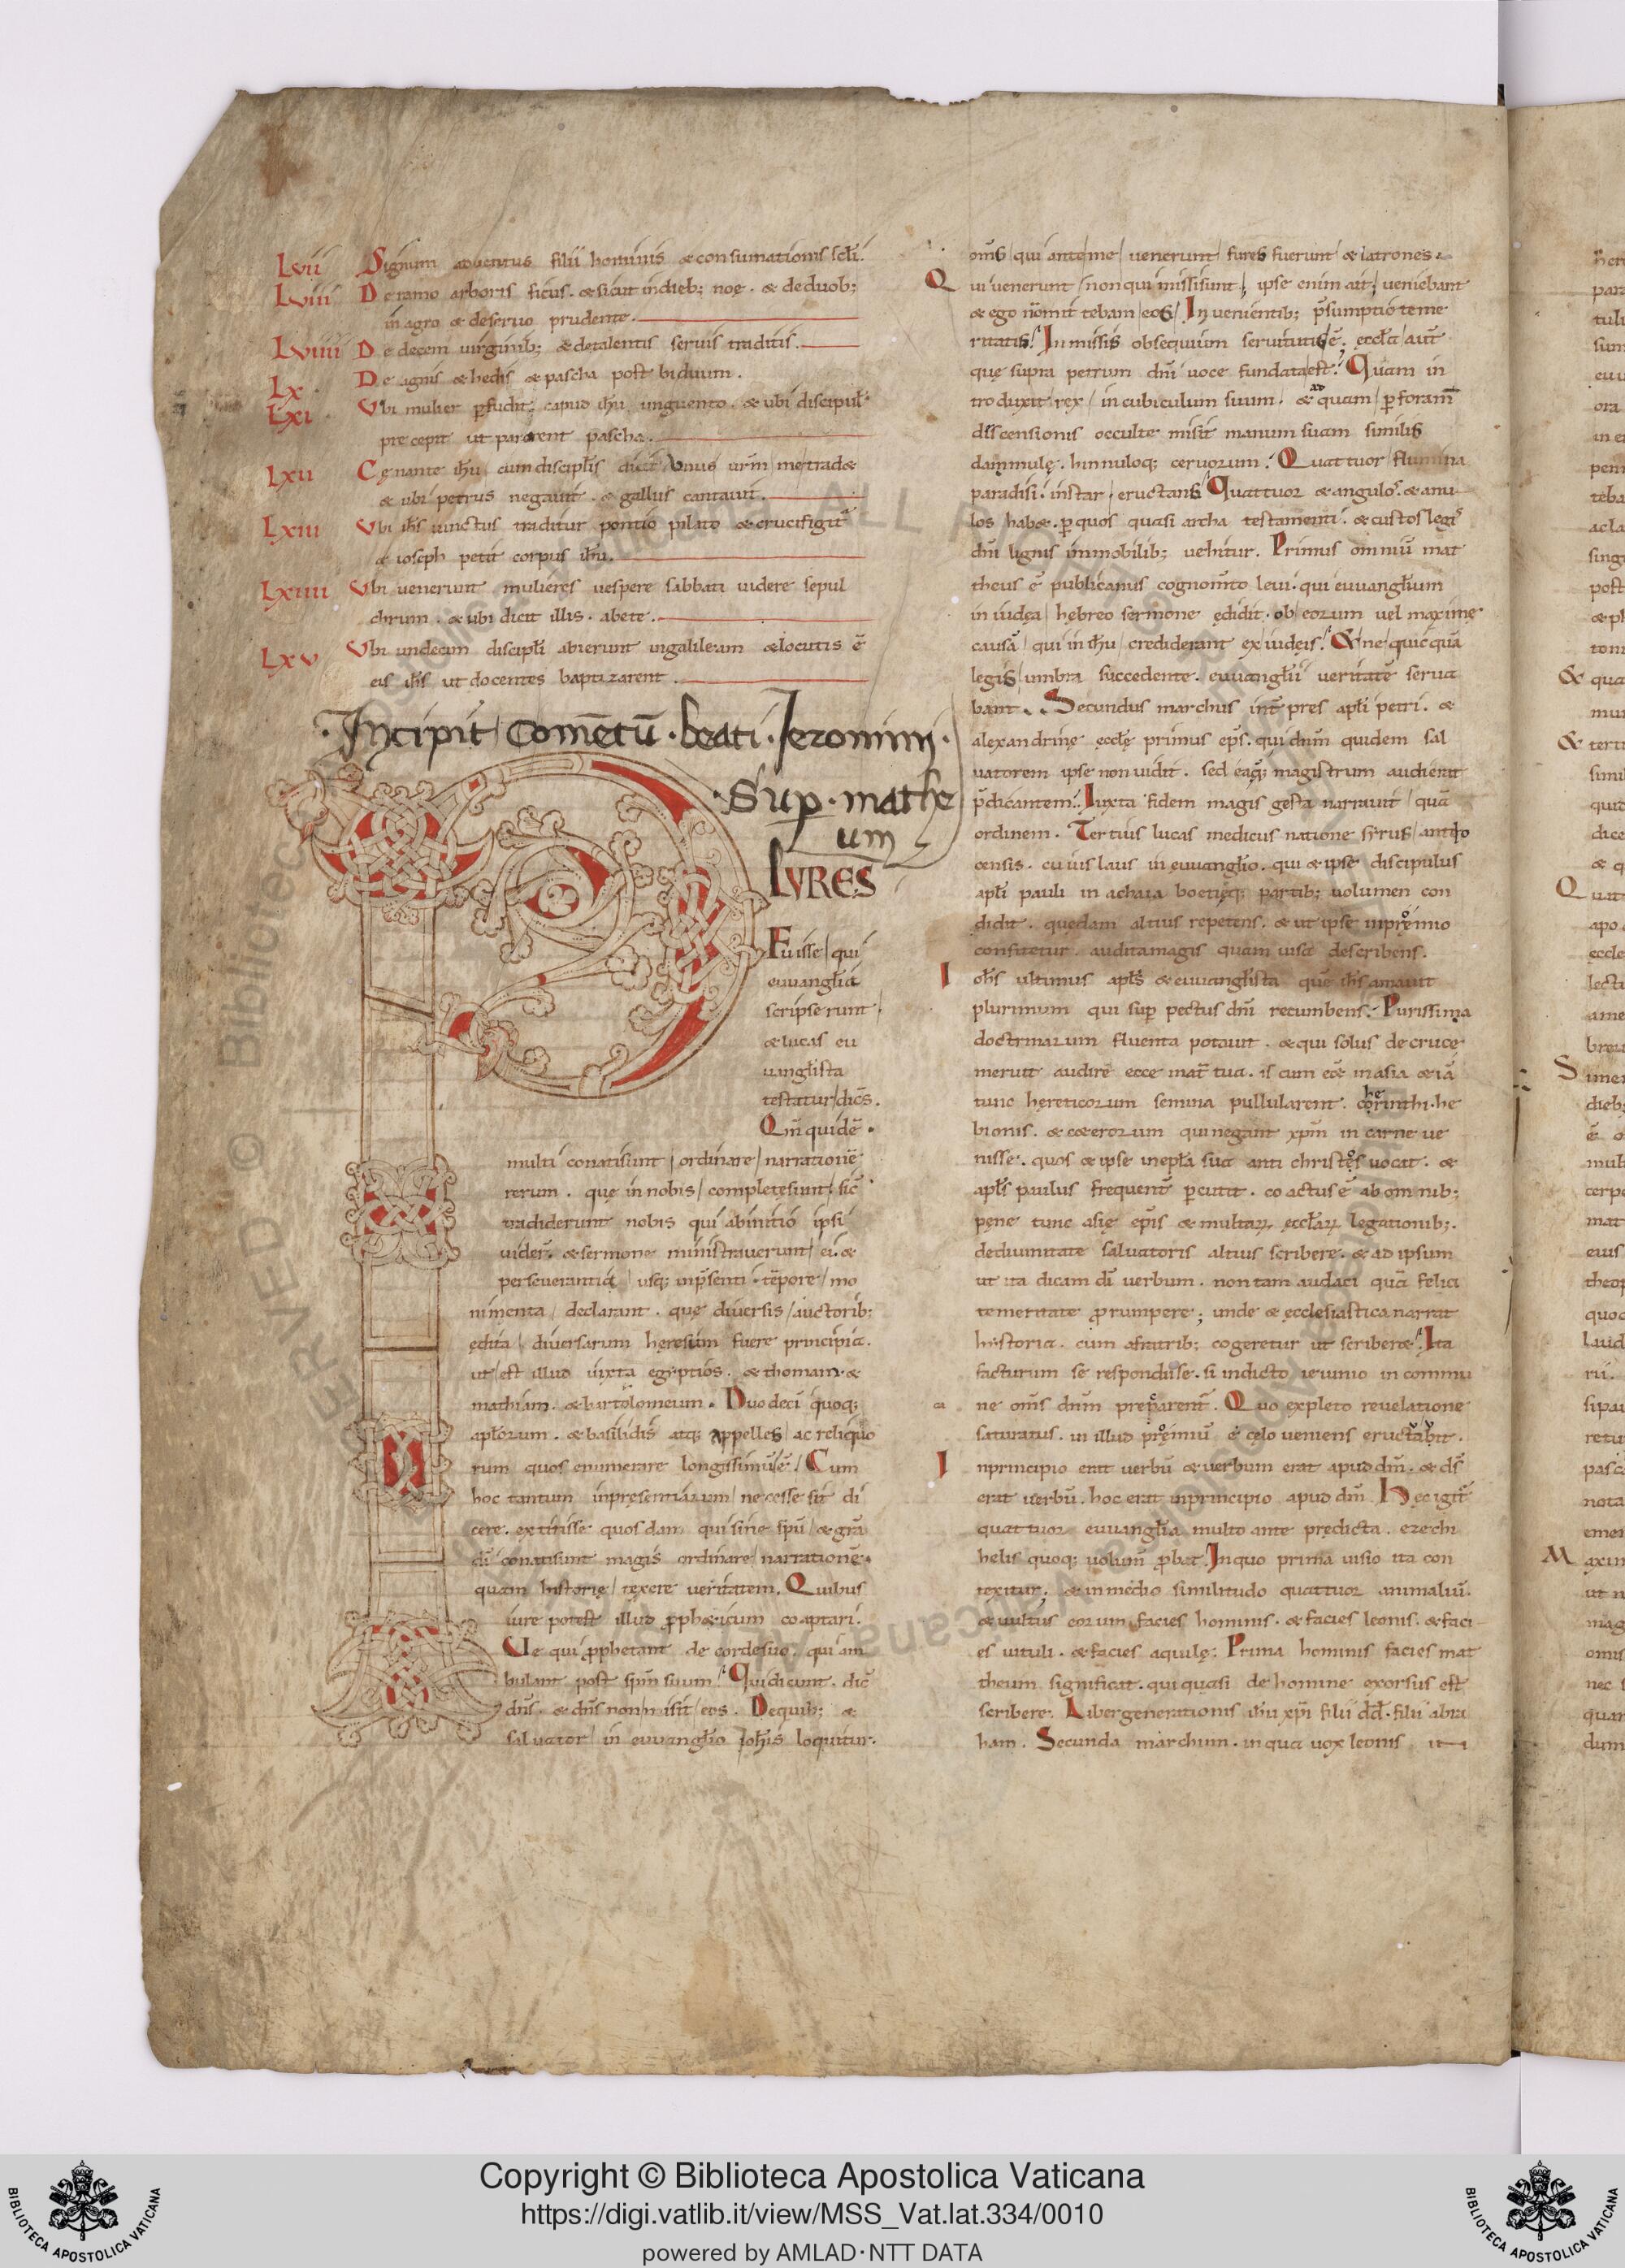 Lvii Signum aduentus filii hominis & consumationis scłi.
Lviii De ramo arboris ficus. & sicut in dieb; noę. & de duob;
in agro & de seruo prudente.
Lviiii De decem uirginib; & de talentis seruis traditis.
Lx De agnis & hedis & pascha post biduum.
Lxi Vbi mulier pfudit capud ihu unguento. & ubi discipul
precepit ut pararent pascha.
Lxii Cęnante ihu cum discipłis dicit Vnus urm me trad&
& ubi petrus negauit. & gallus cantauit.
Lxiii Vbi ihs uinctus traditur pontio pilato & crucifigit
& ioseph petit corpus ihu.
Lxiiii Vbi uenerunt mulieres uespere sabbati uidere sepul
chrum. & ubi dicit illis. abete.
Lxv Vbi undecim discipłi abierunt in galileam & locutis ē
eis ihs ut docentes baptizarent.
Incipit Comētū. beati. Jeronimi.
Sup. mathe
um
PLVRES
Fuisse qui
euuanglia
scripserunt
& lucas eu
uanglista
testatur dicś.
Qm̄ quidē.
multi conati sunt ordinare narrationē
rerum. quę in nobis completę sunt. sic
tradiderunt nobis qui ab initio ipsi
uider. & sermone ministrauerunt ei. &
perseuerantia usq; in p̄senti tēpore mo
nimenta declarant. quę diuersis auctorib;
ędita diuersarum heresium fuere principia.
ut est illud iuxta egyptios. & thomam. &
mathiam. & bartolomeum. Duodeci quoq;
apłorum. & basilidis atq; appelles ac reliquo
rum quos enumerare longissimū ē. Cum
hoc tantum inpresentiarum necesse sit di
cere. extitisse quosdam qui sine spū & gra
di conati sunt magis ordinare narrationē.
quam historię texere ueritatem. Quibus
iure potest illud pph&icum coaptari.
Ve qui pphetant de corde suo. qui am
bulant post spm suum. Qui dicunt. dic̄
dns. & dns non misit eos. De quib; &
saluator in euuanglio Johis loquitur.
oms qui ante me uenerunt fures fuerunt & latrones.
Qui uenerunt non qui missi sunt, ipse enim ait, ueniebant
& ego n̄ omittebam eos. In uenientib; p̄sumptio teme
ritatis. In missis obsequium seruitutis ē. ecclia aut
quę supra petrum dni uoce fundata est. Quam in
troduxit rex in cubiculum suum. & ad quam p foram̄
discensionis occulte misit manum suam similis
dammulę. hinnuloq; ceruorum. Quattuor flumina
paradisi instar eructans Quattuor & angulos. & anu
los hab&. p quos quasi archa testamenti. & custos legis
dni lignis immobilib; uehitur. Primus omniū mat
theus ē publicanus cognom̄to leui. qui euuanglium
in iudea hebreo sermone ędidit. ob eorum uel maxime
causā qui in ihu crediderant ex iudeis. & ne quicquā
legis umbra succedente. euuanglii ueritatē serua
bant. Secundus marchus int̄pres apłi petri. &
alexandrinę ecclę primus eps. qui dnm quidem sal
uatorem ipse non uidit. sed ea q; magistrum audierat
p̄dicantem. Iuxta fidem magis gesta narrauit quā
ordinem. Tertius lucas medicus natione syrus antio
censis. cuius laus in euuanglio. qui & ipse discipulus
apłi pauli in achaia boetięq; partib; uolumen con
didit. quedam altius repetens. & ut ipse in proemio
confitetur. audita magis quam uisa describens.
Iohs ultimus apłs & euuanglista quē ihs amauit
plurimum qui sup pectus dni recumbens. Purissima
doctrinarum fluenta potauit. & qui solus de cruce
meruit audire ecce mat tua. is cum eēt in asia & iā
tunc hereticorum semina pullularent. cherinthi. he
bionis. & c&erorum qui negant xpm in carne ue
nisse. quos & ipse in epła sua anti christos uocat. &
apłs paulus frequent̄ pcutit. coactus ē ab omnib;
pęne tunc asię epis & multarꝝ eccłarꝝ legationib;.
de diuinitate saluatoris altius scribere. & ad ipsum
ut ita dicam di uerbum. non tam audaci quā felici
temeritate prumpere; unde & ecclesiastica narrat
historia. cum a fratrib; cogeretur ut scriber&. Ita
facturum se respondisse. si indicto ieiunio in commu
ne oms dnm preparent. Quo expleto reuelatione
saturatus. in illud proemiū ē celo ueniens eructauit.
In principio erat uerbū & uerbum erat apud dm. & ds
erat uerbū. hoc erat in principio apud dm Hec igit
quattuor euuanglia multo ante predicta. ezechi
helis quoq; uolum̄ pbat. In quo prima uisio ita con
texitur; & in medio similitudo quattuor animaliū.
& uultus eorum facies hominis. & facies leonis. & faci
es uituli. & facies aquilę: Prima hominis facies mat
theum significat. qui quasi de homine exorsus est
scribere. Liber generationis ihu xpi filii dd. filii abra
ham. Secunda marchum. in qua uox leonis
Copyright © Biblioteca Apostolica Vaticana
https://digi.vatlib.it/view/MSS_Vat.lat.334/0010
powered by AMLAD·NTT DATA
BIBLIOTECA APOSTOLICA VATICANA
BIBLIOTECA APOSTOLICA VATICANA